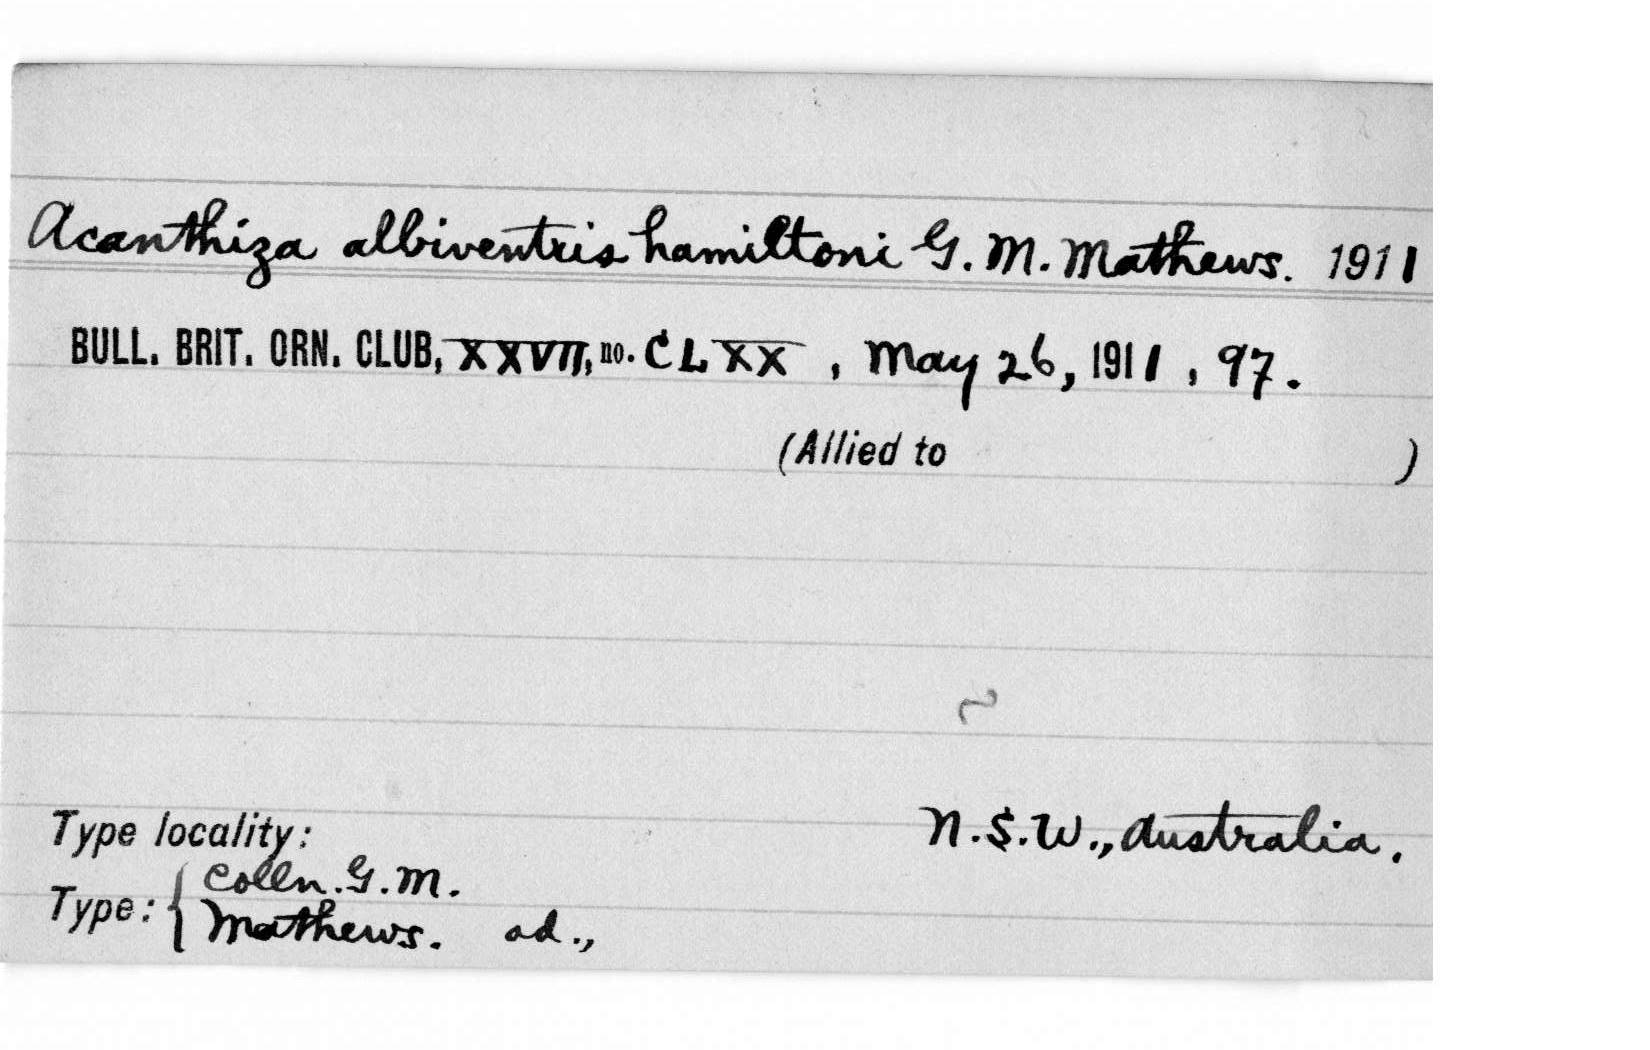 Acanthiza albiventris hamiltoni G. M. Mathews. 1911
BULL. BRIT. ORN. CLUB, XXVII, no. CLXX , May 26, 1911 , 97.
(Allied to )
Type locality: N.S.W., Australia.
Type: { Colln. G. M.
Mathews. ad.,